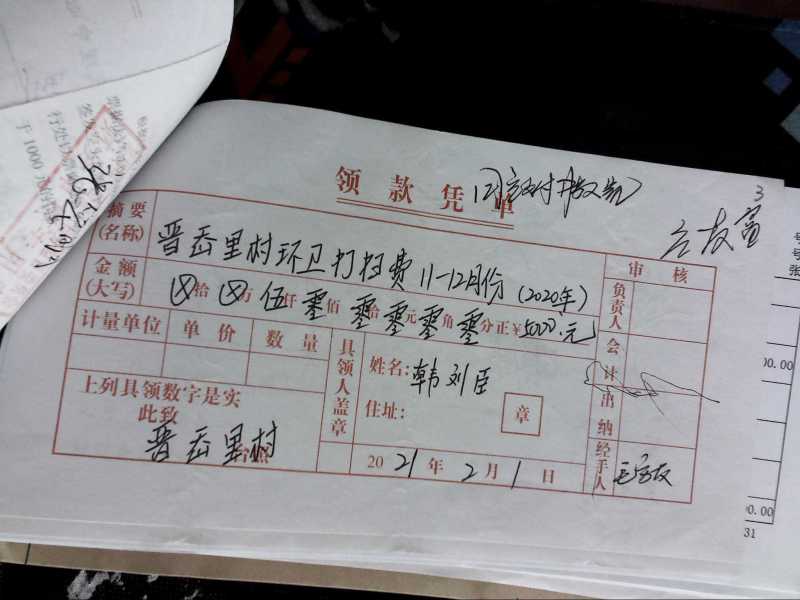 领款凭单
3
摘要
(名称)
晋岳里村环卫打扫费11-12月份(2020年)
金额
(大写)
⊗拾⊗万伍仟零佰零拾零元零角零分正¥5000.元
计量单位 单价 数量
上列具领数字是实
此致
晋岳里村
台照
具领人盖章
姓名:韩刘臣
住址:
章
2021年2月1日
审核
负责人
会计
出纳
经手人
于1000
00.00
00.00
31
号
号
张